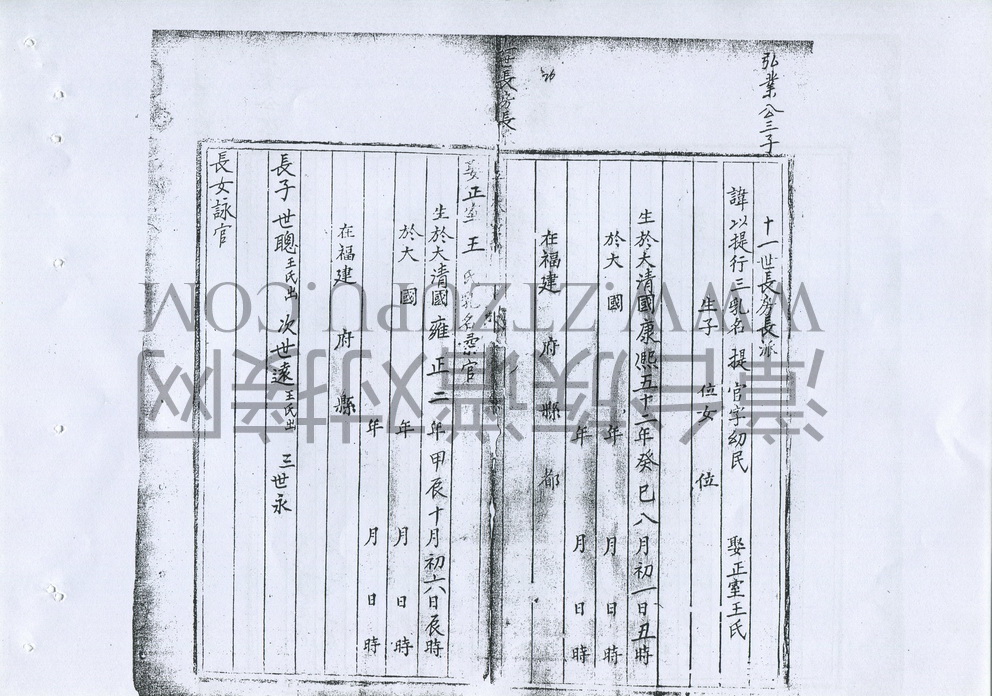 弘業公三子
十一世長房長派
諱以提行三乳名 提 官字幼民 娶正室王氏
生子 位女 位
生於大清國康熙五十二年癸巳八月初一日丑時
於大 國 年 月 日 時
年 月 日 時
在福建 府 縣 都
世長房長
娶正室 王 氏乳名 官
生於大清國雍正二年甲辰十月初六日辰時
於大 國 年 月 日 時
年 月 日 時
在福建 府 縣
長子世聰王氏出 次世遠王氏出 三世永
長女詠官
WWW.ZTZUPU.COM
漳台族谱对接网